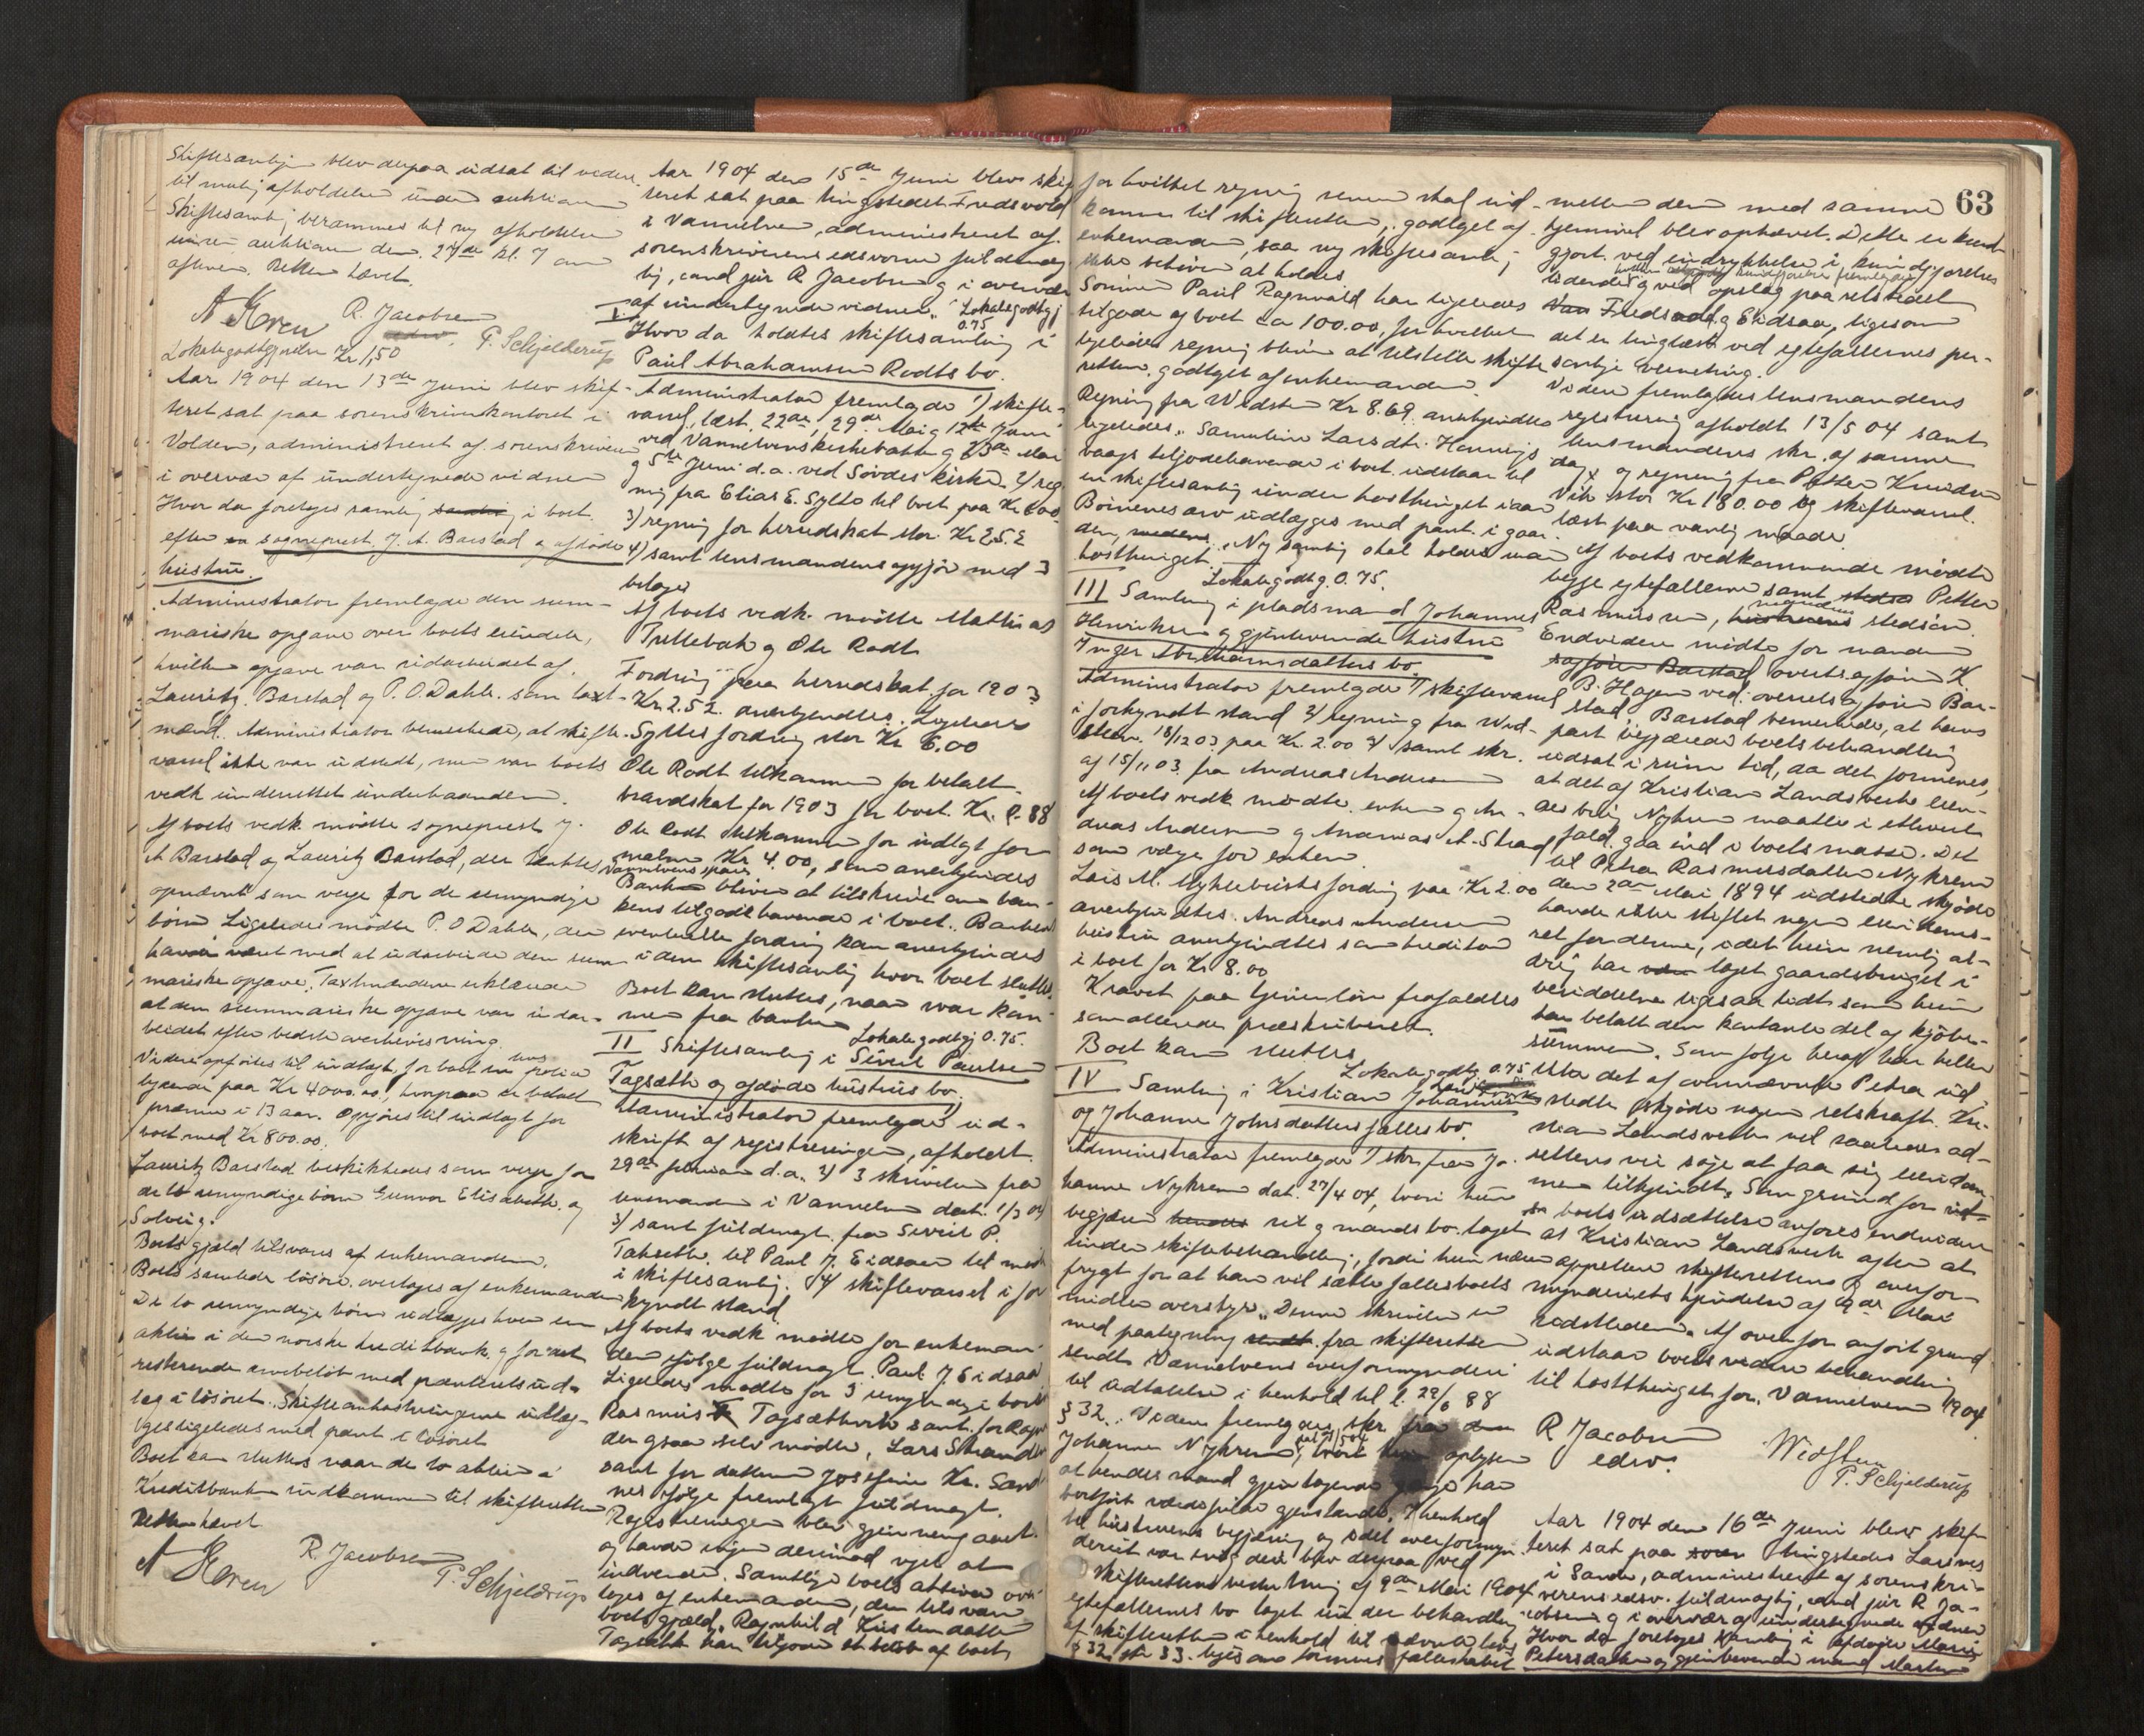 Skiftesamlgn blev derpaa udsat til videre
til mulig afholdelse under auktionen
Skiftesamlg berammes til ny afholdelse
under auktionen den 27de kl. 7 om
aftenen. Retten hævet.
R. Jacobsen
edsv. P. Schjelderup
Lokalegodtgjørelse Kr 1,50
Aar 1904 den 13de Juni blev skif-
teret sat paa sorenskriverkontoret i
Volden, administreret af sorenskriveren
i overvær af undertegnede vidner
Hvor da foretoges samling i boet
efter sogneprest J. A. Barstad og afdøde
hustru.
Administrator fremlagde den sum-
mariske opgave over boets eiendele,
hvilken opgave var udarbeidet af
Lauritz Barstad og P. O. Dahle som taxt-
mænd. Administrator bemerkede, at skifte-
varsel ikke var udstedt, men var boets
vedk. underrettet underhaanden.
Af boets vedk. mødte sogneprest J.
A Barstad og Lauritz Barstad, der
opnævnt som verge for de umyndige
børn Ligeledes mødte P. O Dahle, der
havde været med at udarbeide den sum
mariske opgave. Taxtmændene erklærede
at den summariske opgave var udar-
beidet efter bedste overbevisning.
Videre anførtes til indtægt for boet en police
lydende paa Kr 4000.00, hvorpaa er betalt
præmie i 13 aar. Opføres til indtægt for
boet med Kr 800.00.
Lauritz Barstad beskikkedes som verge for
de to umyndige børn Gunvor Elisabeth og
Solveig.
Boets gjæld tilsvares af enkemanden.
Boets samlede løsøre overtages af enkemanden
De to umyndige børn udlægges hver en
aktie i den norske kreditbank og for det
resterende arvebeløb med panteret ud-
læg i løsøret. Skifteomkostningerne udlæg-
ges ligeledes med pant i løsøret
Boet kan sluttes naar de to aktier i
Kreditbanken indkommer til skifteretten
Retten hævet
R. Jacobsen
P. Schjelderup
Aar 1904 den 15de Juni blev skif
teret sat paa tingstedet Fredsvold
i Vannelven, administreret af
sorenskriverens edsvorne fuldmæg-
tig, cand jur R Jacobsen og i overvær
af undertegnede vidner. Lokalegodtgj
I 0.75
Hvor da holdtes skiftesamling i
Paul Abrahamsen Rodts bo.
Administrator fremlagde 1) skifte-
varsel, læst 22de, 29de Mai og 12te Juni
ved Vannelvens kirkebakke og 23de Mai
og 5te Juni d.a. ved Søvdes kirke. 2/ reg
ning fra Elias E. Sylte til boet paa Kr 6.00
3) regning for herredskat stor Kr 2.52
4) samt lensmandens opgjør med 3
bilager
Af boets vedk. mødte Mathias
Trellebak og Ole Rodt
Fordring paa herredskat for 1903
Kr. 2.52. anerkjendtes. Ligeledes
Syltes fordring stor Kr 6.00
Ole Rodt tilkommer for betalt
brandskat for 1903 for boet Kr. 0.88
Ole Rodt tilkommer for indlagt for
Kr 4.00, som anerkjendes
Vannelvens spare
Bank bliver at tilskrive om ban-
kens tilgodehavende i boet. Bankens
eventuelle fordring kan anerkjendes
i den skiftesamling hvor boet sluttes.
Boet kan sluttes, naar svar kom-
mer fra banken
Lokalegodtgj 0.75.
II Skiftesamling i Sivert Paulsen
Tagsæth og afdøde hustrus bo.
Administrator fremlagde 1) ud-
skrift af registreringen, afholdt
29de februar d.a. 2) 3 skrivelse fra
lensmanden i Vannelven dat. 1/3 04
3) samt fuldmagt fra Sivert P.
Takseth til Paul J. Eidsaa til møde
i skiftesamling. 4/ skiftevarsel i for
kyndt stand
Af boets vedk mødte for enkeman-
den ifølge fuldmagt Paul J Eidsaa
Ligeledes mødte for 3 umyndige i boet
Rasmus Tagsæthvik samt for Ragn
der ogsaa selv mødte, Lars Strand
samt for datteren Josefine Kr. Sand
nes ifølge fremlagt fuldmagt.
Registreringen blev gjennemgaaet
og havde ingen derimod noget at
indvende. Samtlige boets aktiver over
tages af enkemanden, der tilsvarer
boets gjæld. Ragnhild Kristendatter
Tagsæth har tilgode af boet
for hvilket regning senere skal ind-
komme til skifteretten, godtaget af
enkemanden, saa ny skiftesamlg
ikke behøver at holdes.
Sønnen Paul Ragnvald har ligeledes
tilgode af boet ca 100.00, for hvilket
ligeledes regning bliver at tilstille skifte
retten, godtaget af enkemanden.
Regning fra Widsten Kr 8.69 anerkjendtes
ligeledes. Samuline Larsdtr. Hennigs
vaags tilgodehavende i boet udstaar til
en skiftesamlg under høsttinget iaar
Børnenes arv udlægges med pant i gaar-
den. Ny samling skal holdes under
høsttinget.
Lokalegodtg. 0.75.
III Samling i pladsmand Johannes
Henriksen og gjenlevende hustru
Inger Abrahamsdatters bo.
Administrator fremlagde 1) skiftevarsel
i forkyndt stand 2) regning fra Wid-
sten 18/12 03 paa Kr. 2.00 3) samt skr.
af 15/11 03 fra Andreas Andersen
Af boets vedk mødte enken og An-
dreas Andersen og Andreas A. Strand
som verge for enken.
Lars M. Myklebusts fordring paa Kr 2.00
anerkjendtes. Andreas Andersen
hustru anerkjendtes som kreditor
i boet for Kr 8.00
Kravet paa tjenerløn frafaldtes
som allerede præskriberet.
Boet kan sluttes
Lokalegodtg. 0.75
IV Samling i Kristian Johannes
og Johanne Johnsdatters fællesbo.
Administrator fremlagde 1) skr. fra Jo-
hanne Nykrem dat. 27/4 04, hvori hun
begjærer sit og mands bo taget
under skiftebehandling, fordi hun nærer
frygt for at han vil sætte fællesboets
midler overstyr. Denne skrivelse er
med paategning fra skifteretten
sendt Vannelvens overformynderi
til udtalelse i henhold til l. 29/6 88
§ 32. Videre fremlagdes skr. fra
Johanne Nykrem, hvori hun oplyser
at hendes mand gjentagende gange har
bortført værdifulde gjenstande. I henhold
til hustruens begjæring og idet overformyn-
deriet var enig deri blev derpaa ved
skifterettens beslutning af 9de Mai 1904
egtefællernes bo taget under behandling
af skifteretten i henhold til nævnte lovs
§ 32 jfr 33. ligesom formues fællesskabet
63
mellem dem med samme
hjemmel blev ophævet. Dette er kund
gjort ved indrykkelse i kundgjørelses
tidende og ved opslag paa retsstedet
Fredsvold og Eidsaa, ligesom
det er tinglæst ved egtefællernes per-
sonlige værneting.
Videre fremlagdes lensmandens
registrering afholdt 13/5 04 samt
lensmandens skr. af samme
dag og regning fra Petter Knudsen
Vik stor Kr 180.00 og skiftevarsel.
læst paa vanlig maade.
Af boets vedkommende mødte
begge egtefællerne samt Petter
Rasmussen, stedsøn.
Endvidere mødte for manden
overretssagfører K.
B. Hagen ved overretssagfører Bar-
stad. Barstad bemerkede, at hans
part begjærede boets behandling
udsat i rum tid, da det formenes,
at det af Kristian Landsverk eien-
des brug Nykrem maatte i ethvert
fald gaa ind i boets masse. Det
til Petra Rasmusdatter Nykrem
den 2den Mai 1894 udstedte skjøde
havde ikke stiftet nogen eiendoms-
ret for denne, idet hun nemlig al-
drig har taget gaardsbruget i
besiddelse ligesaa lidt som hun
har betalt den kontante del af kjøbe-
summen. Som følge heraf har heller
ikke det af ovennævnte Petra ud-
stedte skjøde nogen retskraft. Kri-
stian Landsverk vil saaledes ad
rettens vei søge at faa sig eiendom-
men tilkjendt. Som grund for
boets udsættelse anføres endvidere
at Kristian Landsverk agter at
appellere skifterettens og overfor-
mynderiets kjendelse af 9de Mai
sidstleden. Af ovenfor anført grund
udstaar boets videre behandling
til høstthinget for Vannelven 1904
R Jacobsen
edsv.
Widsten
P. Schjelderup
Aar 1904 den 16de Juni blev skif-
teret sat paa tingstedet Larsnes
i Sande, administreret af sorenskri-
verens edsv. fuldmægtig, cand jur R Ja-
cobsen og i overvær af undertegnede vidner
Hvor da foretoges samling i afdøde Marie
Petersdatter og gjenlevende mand Martin